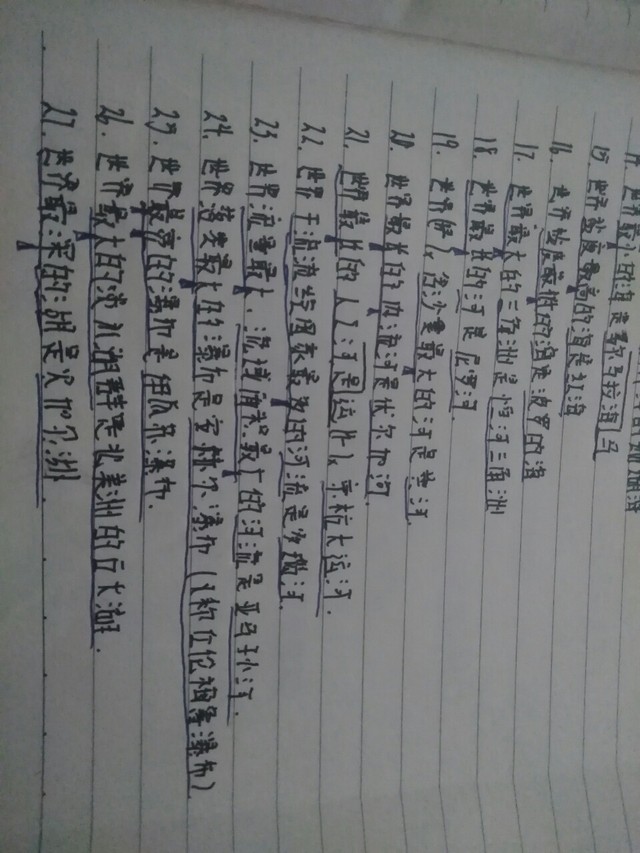 世界最小的海是马尔马拉海
15. 世界盐度最高的海是红海
16. 世界盐度最低的海是波罗的海
17. 世界最大的三角洲是恒河三角洲
18. 世界最长的河是尼罗河
19. 世界含沙量最大的河是黄河.
20. 世界最长的内流河是伏尔加河.
21. 世界最长的人工河是运(京杭大运河.
22. 世界干流流经国家最多的河流是多瑙河.
23. 世界流量最大、流域面积最广的河流是亚马孙河.
24. 世界落差最大的瀑布是安赫尔瀑布(又称丘伦梅鲁瀑布)
25. 世界最宽的瀑布是伊瓜苏瀑布.
26. 世界最大的淡水湖群是北美洲的五大湖.
27. 世界最深的湖是贝加尔湖